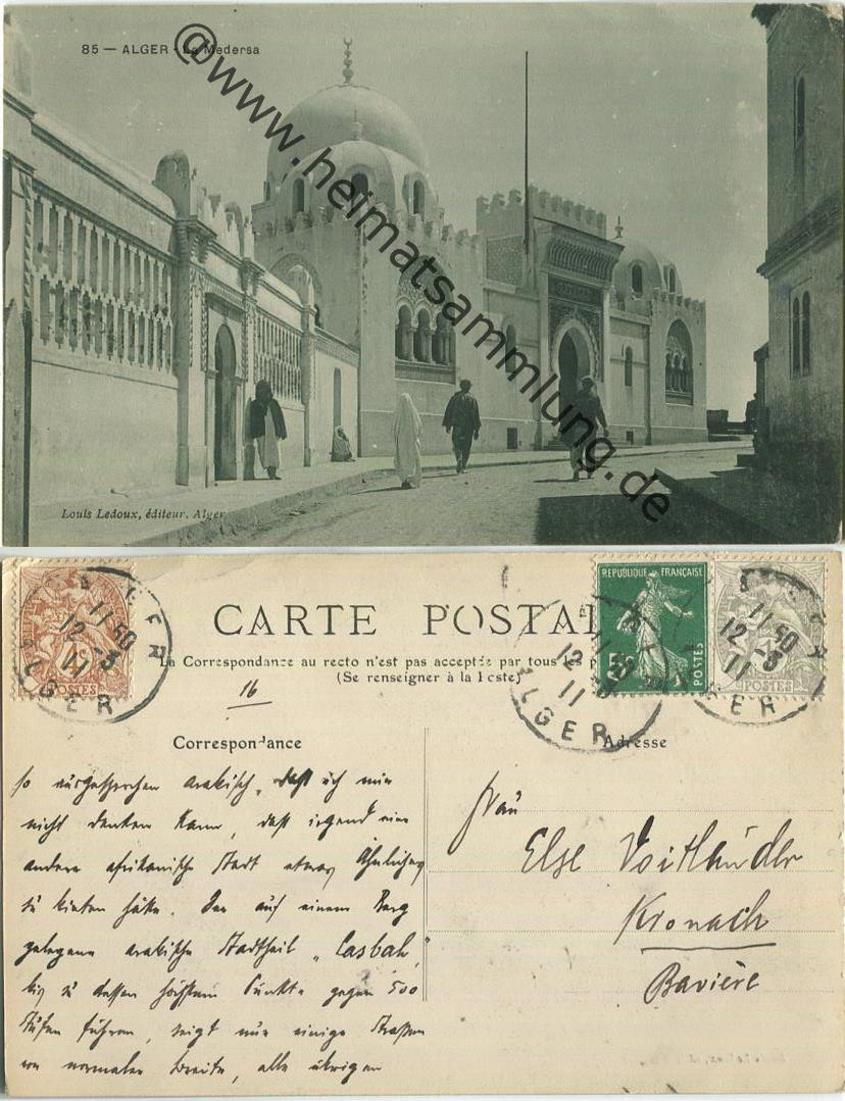 85 — ALGER - La Medersa
@www.heimatsammlung.de
Louis Ledoux, éditeur, Alger
CARTE POSTAL
La Correspondance au recto n'est pas acceptée par tous les p
(Se renseigner à la Poste)
16
REPUBLIQUE FRANÇAISE
POSTES
5
POSTES
POSTES
ALGER
11 50
12 -3
11
ALGER
11
12
11
ALGER
11 50
12 -3
11
Correspondance
Adresse
so ausgesprochen arabisch, daß ich mir
nicht denken kann, daß irgend eine
andere afrikanische Stadt etwas Ähnliches
zu bieten hätte. Der auf einem Berg
gelegene arabische Stadtheil „Casbah,"
bis zu dessen höchstem Punkte gegen 500
Stufen führen, zeigt nur einige Straßen
von normaler Breite, alle übrigen
Frau
Else Voitländer
Kronach
Bavière